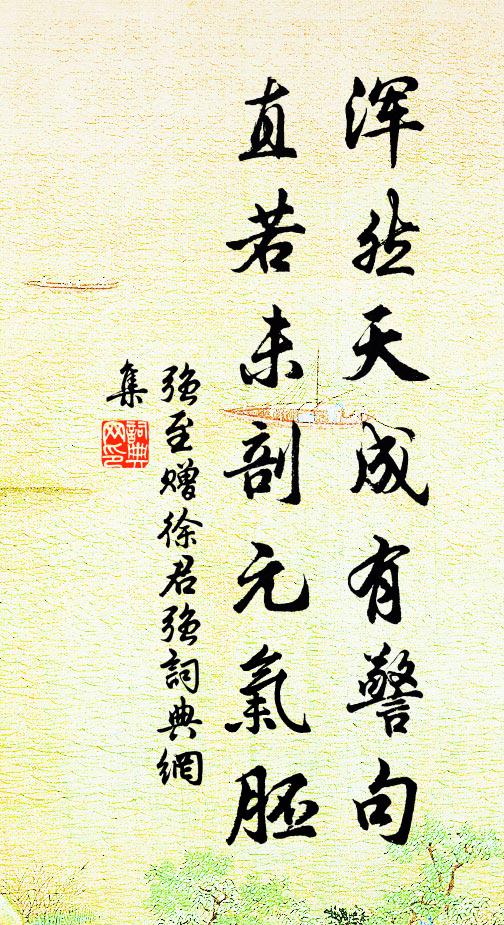 浑然天成有警句
直若未剖元氣胚
强至赠徐君强詞典網
集
詞典
网印